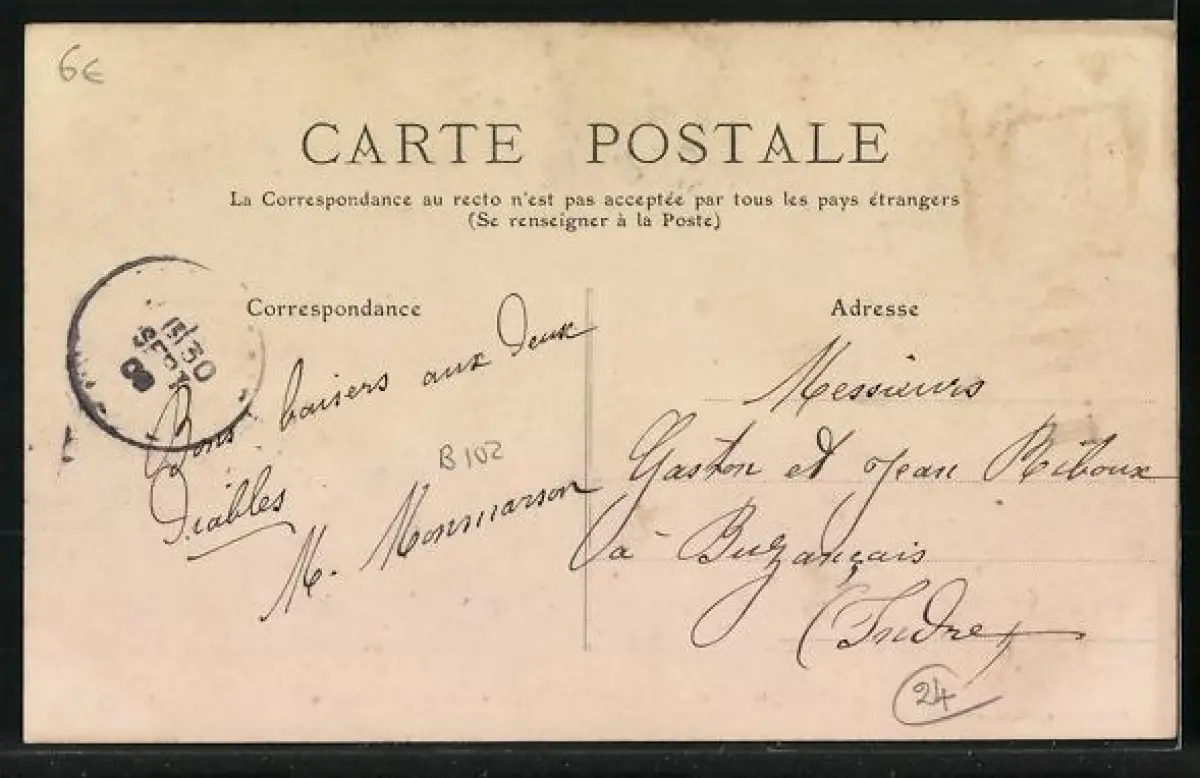 6€
CARTE POSTALE
La Correspondance au recto n'est pas acceptée par tous les pays étrangers
(Se renseigner à la Poste)
Correspondance
Adresse
Bons baisers aux Deux
Diables
M. Monmarson
B 102
Messieurs
Gaston et Jean Riboux
à Buzançais
(Indre)
24